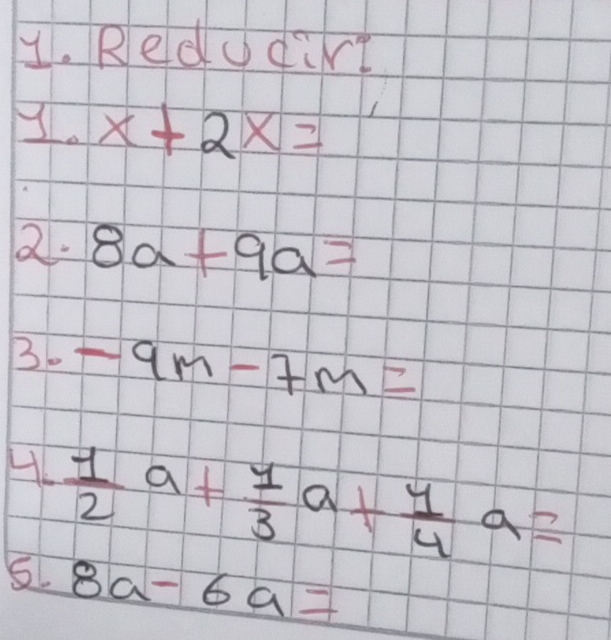 1. Reducir:
1. x + 2x =
2. 8a + 9a =
3. - 9m - 7m =
4. 1/2 a + 1/3 a + 1/4 a =
5. 8a - 6a =